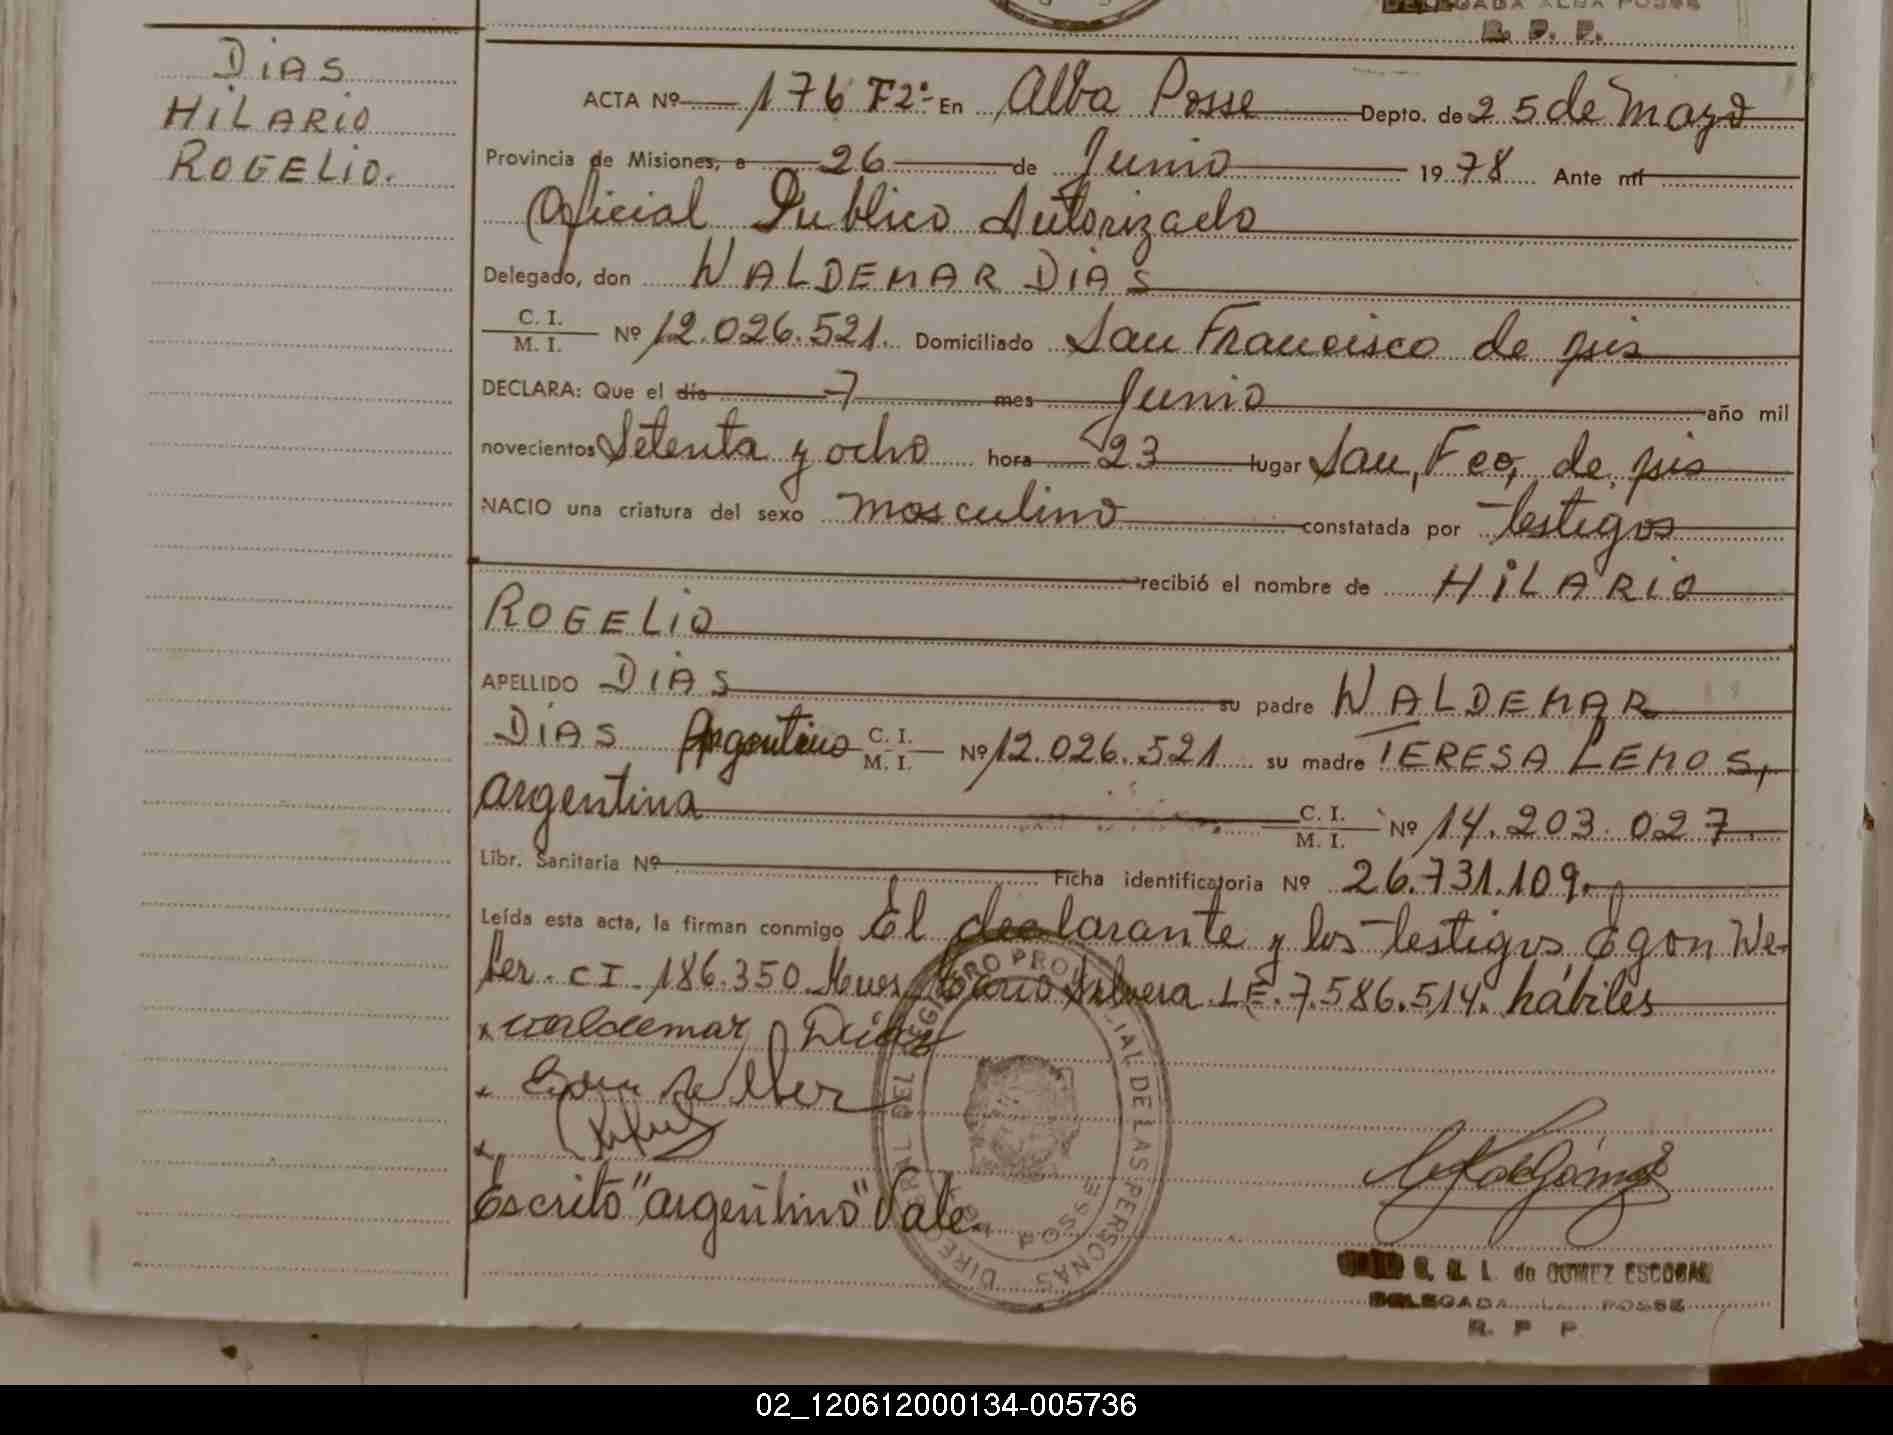 DELEGADA ALBA POSSE
R. P. P.
DiAS
HiLARiO
ROGELiO.
ACTA Nº 176 Fº 2º- En Alba Posse Depto. de 25 de Mayo
Provincia de Misiones, a 26 de Junio 1978 Ante mí
Oficial Publico Autorizado
Delegado, don WALDEMAR DiAS
C. I.
M. I. Nº 12.026.521. Domiciliado San Francisco de Asis
DECLARA: Que el día 7 mes Junio año mil
novecientos Setenta y ocho hora 23 lugar San, Fco, de Asis
NACIO una criatura del sexo masculino constatada por testigos
recibió el nombre de HiLARiO
ROGELiO
APELLIDO DiAS su padre WALDEMAR
DiAS Argentino C. I.
M. I. Nº 12.026.521 su madre TERESA LEMOS,
argentina C. I.
M. I. Nº 14.203.027
Libr. Sanitaria Nº Ficha identificatoria Nº 26.731.109.
Leída esta acta, la firman conmigo El declarante y los testigos, Egon We-
ber - CI - 186.350 Silvera LE. 7.586.514. hábiles
x Waldemar Dias
Escrito "argentino" Vale.
DIRE GRAL DEL REGISTRO PROVINCIAL DE LAS PERSONAS
ALBA POSSE
de GOMEZ ESCOBAR
DELEGADA ALBA POSSE
R. P. P.
02_120612000134-005736